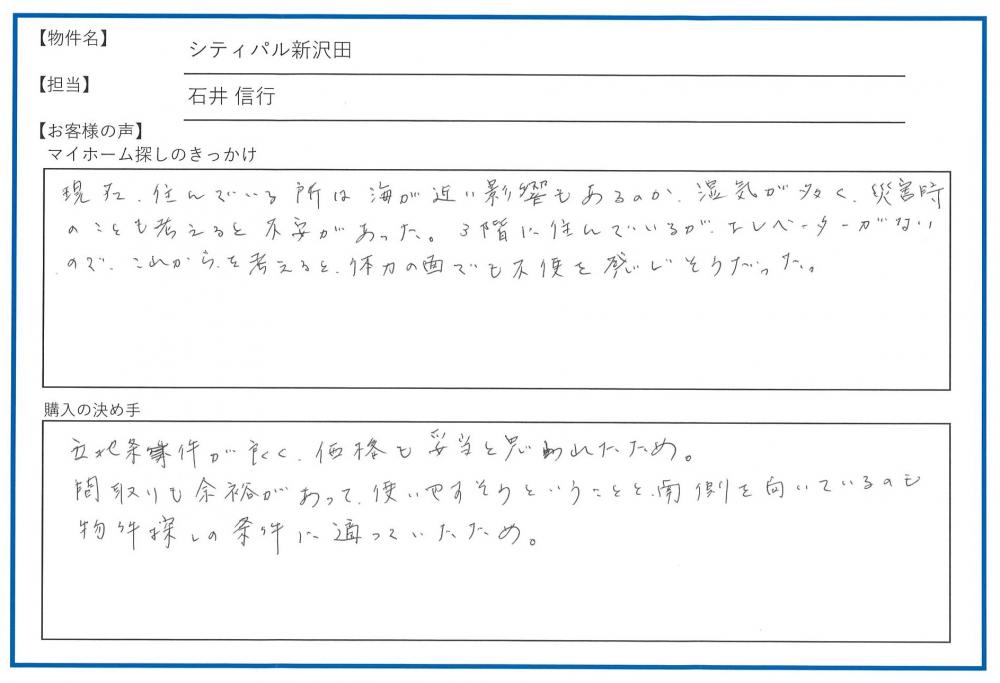 【物件名】
シティパル新沢田
【担当】
石井 信行
【お客様の声】
マイホーム探しのきっかけ
現在、住んでいる所は海が近い影響もあるのか、湿気が多く、災害時
のことも考えると不安があった。3階に住んでいるが、エレベーターがない
ので、これからを考えると、体力の面でも不便を感じそうだった。
購入の決め手
立地条件が良く、価格も妥当と思われたため。
間取りも余裕があって、使いやすそうということと、南側を向いているのも
物件探しの条件に適っていたため。